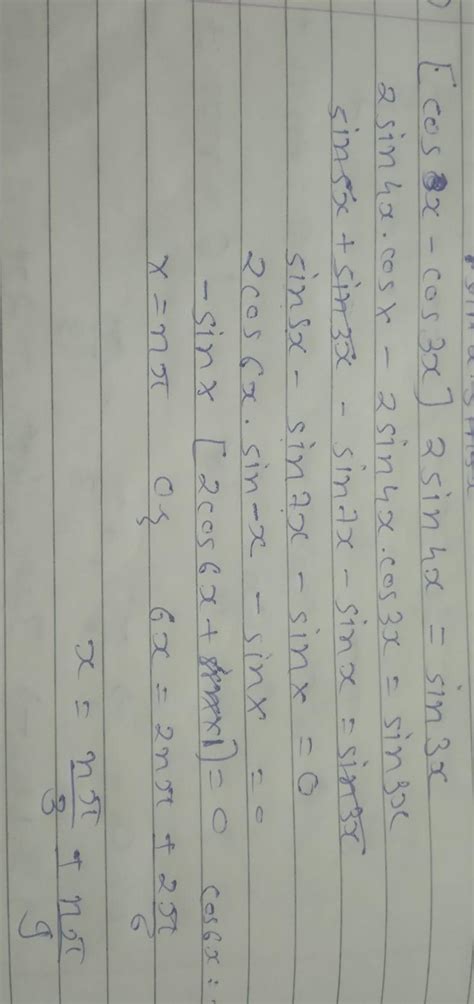 [cos x - cos 3x] 2 sin 4x = sin 3x
2 sin 4x . cos x - 2 sin 4x . cos 3x = sin 3x
sin 5x + sin 3x - sin 7x - sin x = sin 3x
sin 5x - sin 7x - sin x = 0
2 cos 6x . sin -x - sin x = 0
- sin x [2 cos 6x + 1] = 0 cos 6x =
x = nπ or 6x = 2nπ + 2π/6
x = nπ/3 + nπ/9